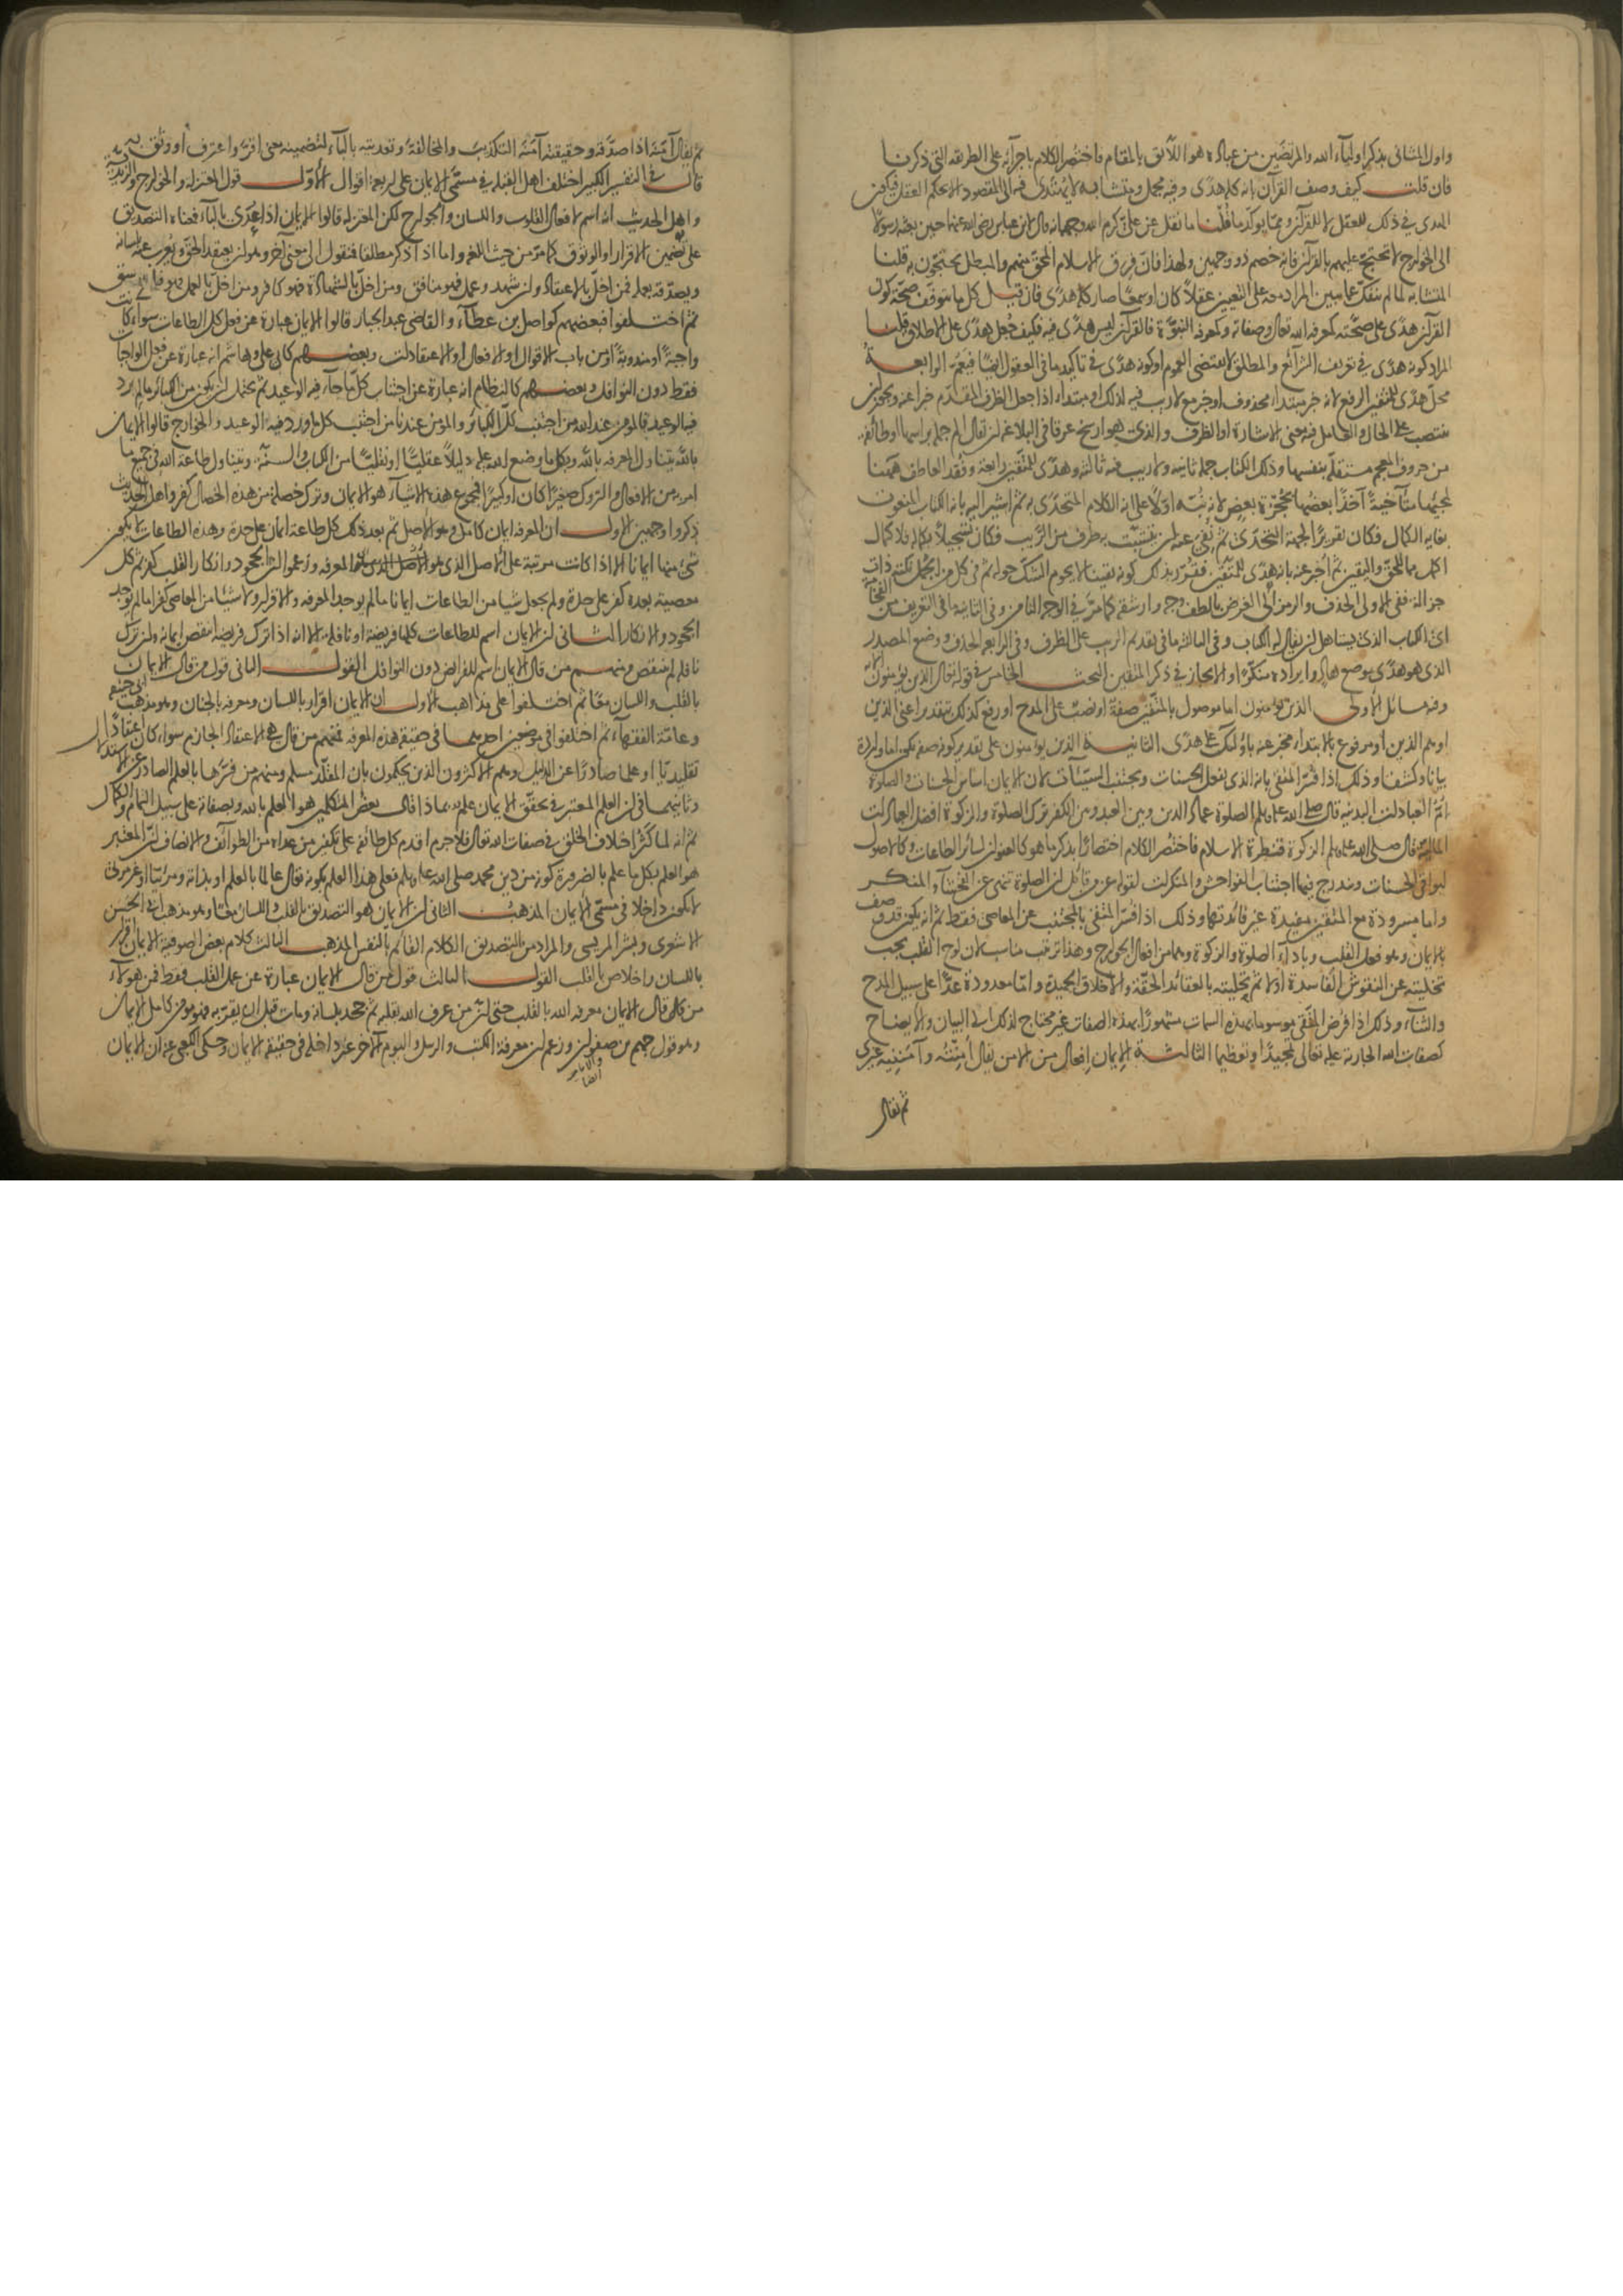 واول المثانى بذكر اولياء الله والمرتضين من عباده هو اللائق بالمقام فاختصر الكلام باجرائه على الطريقه التى ذكرنا
فان قلت كيف وصف القرآن بانه كله هدى وفيه مجمل ومتشابه لا يهتدى فيهما الى المقصود الا بحكم العقل فيكون
الهدى فى ذلك للعقل لا للقرآن ومما يوكد ما قلنا ما نقل عن على كرم الله وجهه انه قال لابن عباس رضى الله عنهما حين بعثه رسولا
الى الخوارج لا تحتج عليهم بالقرآن فانه خصم ذو وجهين ولهذا فان فرق الاسلام المحق منهم والمبطل يحتجون به قلنا
المتشابه لما لم ينفك عما يبين المراد منه على التعيين عقلا كان او سمعا صار كله هدى فان قيل كل ما يتوقف صحة كون
القرآن هدى على صحته كمعرفة الله تعالى وصفاته وكمعرفة النبوة فالقرآن ليس هدى فيه فكيف جعل هدى على الاطلاق قلنا
المراد كونه هدى فى تعريف الشرائع والمطلق لا يقتضى العموم او كونه هدى فى تاكيد ما فى العقول ايضا فيعم الرابعة
محل هدى للمتقين الرفع لانه خبر مبتداء محذوف او خبر مع لا ريب فيه لذلك او مبتداء اذا جعل الظرف المقدم خبرا عنه ويجوز ان
ينتصب على الحال والعامل فيه معنى الاشارة او الظرف والذى هو ارسخ عرقا فى البلاغة ان يقال الم جملة براسها او طائفة
من حروف المعجم مستقلة بنفسها وذلك الكتاب جملة ثانيه ولا ريب فيه ثالثه وهدى للمتقين رابعة وفقد العاطف بينها
لمجيئها متآخية آخذا بعضها بحجزة بعض لانه نبه اولا على انه الكلام المتحدى به ثم اشير اليه بانه الكتاب المنعوت
بغاية الكمال فكان تقريرا لجهة التحدى ثم نفى عنه ان يتشبث به طرف من الريب فكان تسجيلا بكماله فلا كمال
اكمل مما للحق واليقين ثم اخبر عنه بانه هدى للمتقين فقرر بذلك كونه يقينا لا يحوم الشك حوله ثم فى كل من الجمل نكتة ذات
جزالة ففى الاولى الحذف والرمز الى الغرض بالطف وجه وارشقه كما مر فى الوجه الثامن وفى الثانية ما فى التعريف من الفخامة
اى الكتاب الذى يستاهل ان يقال له الكتاب وفى الثالثه ما فى تقديم الريب على الظرف وفى الرابعه الحذف ووضع المصدر
الذى هو هدى موضع هاد وايراده منكرا والايجاز فى ذكر المتقين البحث الخامس فى قوله تعالى الذين يؤمنون الآيه
وفيه مسائل الاولى الذين يؤمنون اما موصول بالمتقين صفة او نصب على المدح او رفع كذلك بتقدير اعنى الذين
او هم الذين او مرفوع بالابتداء مخبر عنه باولئك على هدى الثانية الذين يؤمنون على تقدير كونه صفة يكون اما واردة
بيانا وكشفا وذلك اذا فسر المتقى بانه الذى يفعل الحسنات ويجتنب السيئات لان الايمان اساس الحسنات والصلوة
ام العبادات البدنية قال صلى الله عليه وسلم الصلوة عماد الدين وبين العبد وبين الكفر ترك الصلوة والزكوة افضل العبادات
المالية قال صلى الله عليه وسلم الزكوة قنطرة الاسلام فاختصر الكلام اختصارا بذكر ما هو كالعنوان لسائر الطاعات وكالاصول
لبواقى الحسنات ويندرج فيها اجتناب الفواحش والمنكرات لقوله عز من قائل ان الصلوة تنهى عن الفحشاء والمنكر
واما مسرودة مع المتقين مفيدة غير فائدتها وذلك اذا فسر المتقى بالمجتنب عن المعاصى فقط ثم انه يكون قد وصف
بالايمان وهو فعل القلب وباداء الصلوة والزكوة وهما من افعال الجوارح وهذا ترتيب مناسب لان لوح القلب يجب
تخليته عن النقوش الفاسدة اولا ثم تحليته بالعقائد الحقة والاخلاق الحميدة واما معدودة عدا على سبيل المدح
والثناء وذلك اذا فرض المتقى موسوما بهذه السمات مشهورا بهذه الصفات غير محتاج لذلك الى البيان والايضاح
كصفات الله الجارية عليه تعالى تمجيدا وتعظيما الثالثة الايمان افعال من الامن يقال امنته وآمننيه غيرى
ثم يقال
ثم يقال آمنه اذا صدقه وحقيقته آمنه التكذيب والمخالفة وتعديته بالباء لتضمينه معنى اقر واعترف او وثق به
قال فى التفسير الكبير اختلف اهل القبله فى مسمى الايمان على اربعة اقوال الاول قول المعتزله والخوارج والزيدية
واهل الحديث انه اسم لافعال القلوب واللسان والجوارح لكن المعتزله قالوا الايمان اذا عدى بالباء فمعناه التصديق
على تضمين الاقرار او الوثوق كما مر من حيث اللغه واما اذا ذكر مطلقا فنقول الى معنى آخر وهو ان يعتقد الحق ويعرب عنه بلسانه
ويصدقه بعمله فمن اخل بالاعتقاد وان شهد وعمل فهو منافق ومن اخل بالشهادة فهو كافر ومن اخل بالعمل فهو فاسق
ثم اختلفوا فبعضهم كواصل بن عطاء والقاضى عبد الجبار قالوا الايمان عبارة عن فعل كل الطاعات سواء كانت
واجبة او مندوبة او من باب الاقوال او الافعال او الاعتقادات وبعضهم كابى على وهاشم انه عبارة عن فعل الواجبات
فقط دون النوافل وبعضهم كالنظام انه عبارة عن اجتناب كل ما جاء فيه الوعيد ثم يحتمل ان يكون من الكبائر ما لم يرد
فيه الوعيد فالمؤمن عند الله من اجتنب كل الكبائر والمؤمن عندنا من اجتنب كل ما ورد فيه الوعيد والخوارج قالوا الايمان
بالله يتناول المعرفه بالله وبكل ما وضع الله عليه دليلا عقليا او نقليا من الكتاب والسنة ويتناول طاعة الله فى جميع ما
امر به من الافعال والتروك صغيرا كان او كبيرا فمجموع هذه الاشياء هو الايمان وترك خصلة من هذه الخصال كفر واهل الحديث
ذكروا وجهين الاول ان المعرفه ايمان كامل وهو الاصل ثم بعد ذلك كل طاعة ايمان على حدة وهذه الطاعات لا يكون
شئ منها ايمانا الا اذا كانت مرتبة على الاصل الذى هو المعرفه وزعموا ان الجحود وانكار القلب كفر ثم كل
معصية بعده كفر على حدة ولم يجعل شيا من الطاعات ايمانا ما لم يوجد المعرفه والاقرار ولا شيا من المعاصى كفرا ما لم يوجد
الجحود والانكار الثانى ان الايمان اسم للطاعات كلها فريضة او نافلة الا انه اذا ترك فريضة انتقص ايمانه وان ترك
نافله لم ينتقص ومنهم من قال الايمان اسم للفرائض دون النوافل القول الثانى قول من قال الايمان
بالقلب واللسان معا ثم اختلفوا على مذاهب الاول ان الايمان اقرار باللسان ومعرفه بالجنان وهو مذهب ابى حنيفه
وعامة الفقهاء ثم اختلفوا فى موضعين احدهما فى حقيقة هذه المعرفة فمنهم من قال هى الاعتقاد الجازم سواء كان اعتقادا
تقليديا او علما صادرا عن الدليل وهم الاكثرون الذين يحكمون بان المقلد مسلم ومنهم من فسرها بالعلم الصادر عن الاستدلال
وثانيهما فى ان العلم المعتبر فى تحقق الايمان علم بماذا قال بعض المتكلمين هو العلم بالله وبصفاته على سبيل التمام والكمال
ثم انه لما كثر اختلاف الخلق فى صفات الله تعالى فلا جرم اقدم كل طائفه على تكفير من عداه من الطوائف والانصاف ان المعتبر
هو العلم بكل ما علم بالضرورة كونه من دين محمد صلى الله عليه وسلم فعلى هذا العلم بكونه تعالى عالما بالعلم او بذاته ومرئيا او غير مرئى
لا يكون داخلا فى مسمى الايمان المذهب الثانى ان الايمان هو التصديق بالقلب واللسان معا وهو مذهب ابى الحسن
الاشعرى وبشر المريسى والمراد من التصديق الكلام القائم بالنفس المذهب الثالث كلام بعض الصوفية الايمان اقرار
باللسان واخلاص بالقلب القول الثالث قول من قال الايمان عبارة عن عمل القلب فقط فمن هؤلاء
من قال الايمان معرفه الله بالقلب حتى ان من عرف الله بقلبه ثم جحد بلسانه ومات قبل ان يقر به فهو مؤمن كامل الايمان
وهو قول جهم بن صفوان وزعم ان معرفة الكتب والرسل واليوم الآخر غير داخلة فى حقيقة الايمان وحكى الكعبى عنه ان الايمان